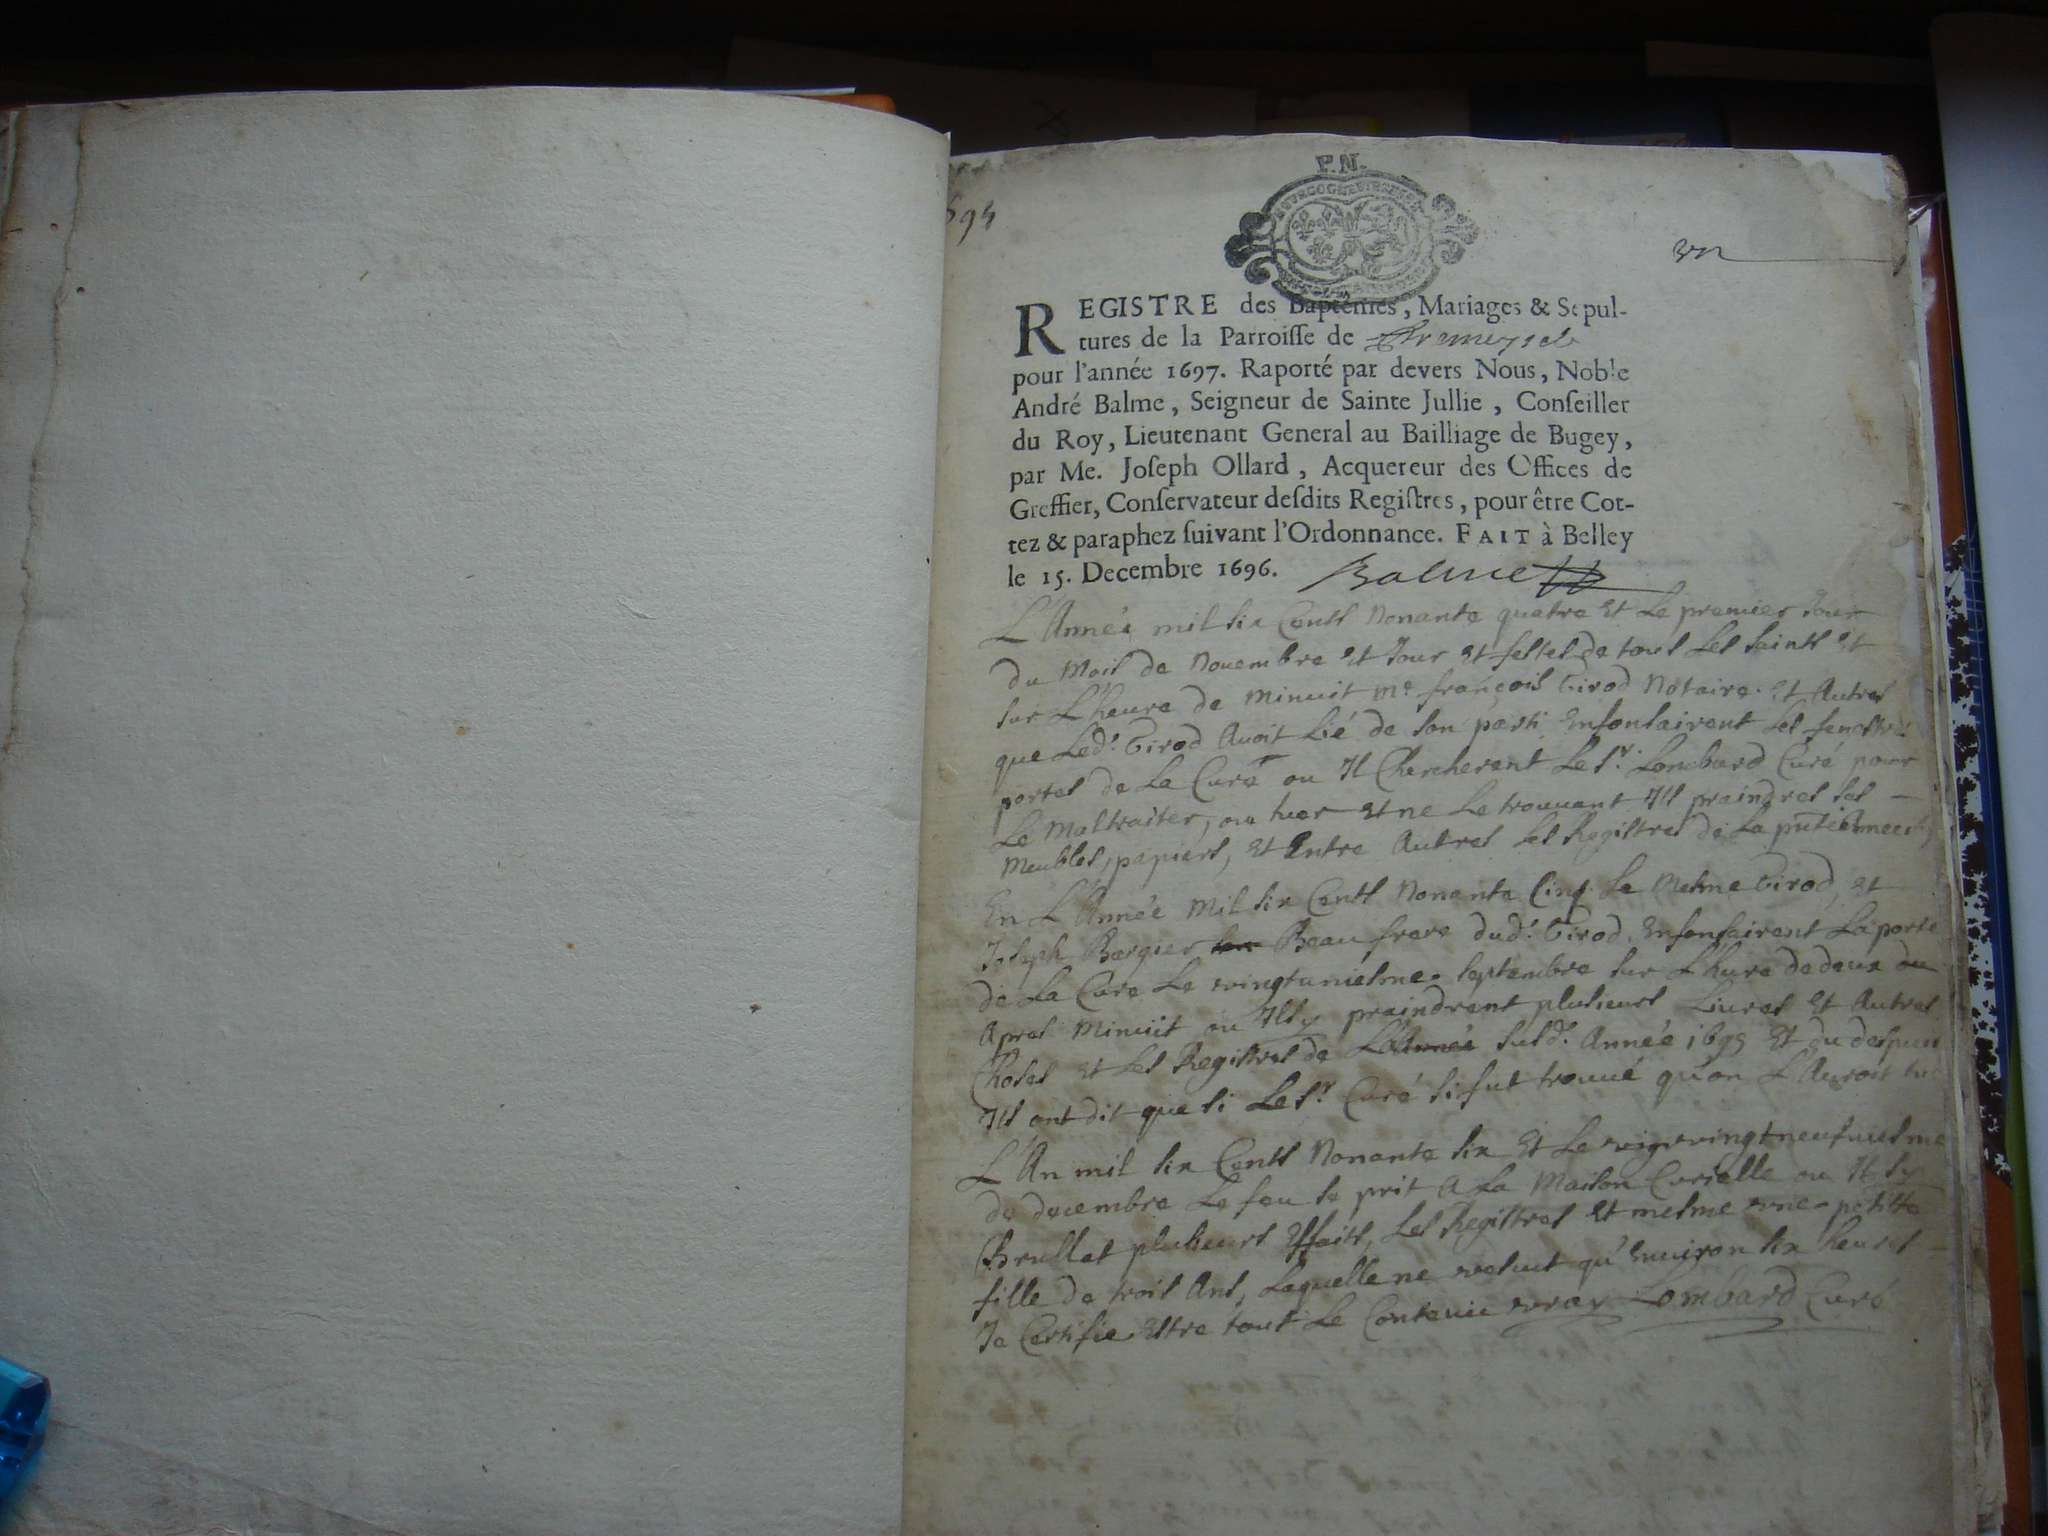 P.N.
BOURGOGNE
694
vn
REGISTRE des Baptêmes, Mariages & Sepul-
tures de la Parroiſſe de
pour l'année 1697. Raporté par devers Nous, Noble
André Balme, Seigneur de Sainte Jullie, Conſeiller
du Roy, Lieutenant General au Bailliage de Bugey,
par Me. Joſeph Ollard, Acquereur des Offices de
Greffier, Conſervateur deſdits Regiſtres, pour être Cot-
tez & paraphez ſuivant l'Ordonnance. FAIT à Belley
le 15. Decembre 1696. Balme
L'Année mil six Cents Nonante quatre Et Le premier Jour
du Mois de Novembre Et Jour Et festes de tous Les saints Et
sur L'heure de Minuit Me. françois Girod Notaire. Et Autres
que Led. Girod Avoit Lié de son parti Enfonsairent Les fenestres
portes de La Cure ou Il Chercherent Le Sr. Lombard Curé pour
Le Maltraiter, ou tuer Et ne Le trouvant Ils praindres ses -
Meubles, papiers, Et Entre Autres Les Registres de La pnte Année
En L'Année Mil six Cents Nonante Cinq Le Mesme Girod, Et
Joseph Bergier son Beau frere dud. Girod, Enfonsairent La porte
de La Cure Le vingtuniesme septembre sur L'hure de deux ou
Apres Minuit ou Ils y praindrent plusieurs Livres Et Autres
Choses Et Les Registres de L'Année susd. Année 1695 Et du despuis
Ils ont dit que si Le Sr. Curé si fut trouvé qu'on L'Auroit tué
L'An mil six Cents Nonante six Et Le vig vingtneufuiesme
de decembre Le feu se prit A La Maison Curielle ou Il sy
Brullat plusieurs Effaits, Les Registres Et mesme vne petitte
fille de trois Ans, Laquelle ne vesent qu'Environ six heures
Je Certifie Estre tout Le Contenu vray Lombard Curé